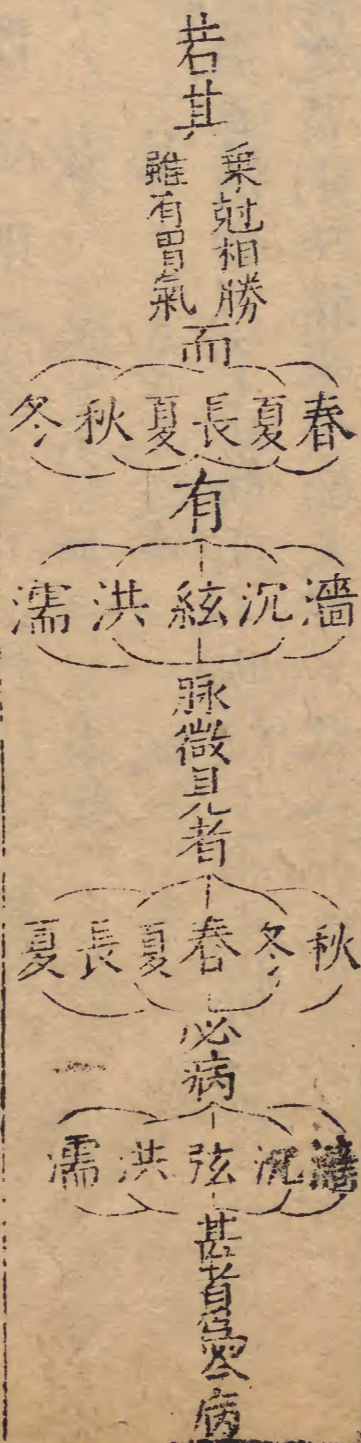 若其
乗尅相勝
雖有胃氣
而
春夏長夏秋冬
有
濇沉絃洪濡
脉微見者
秋冬春夏長夏
必病
濇沉弦洪濡
甚者為今病